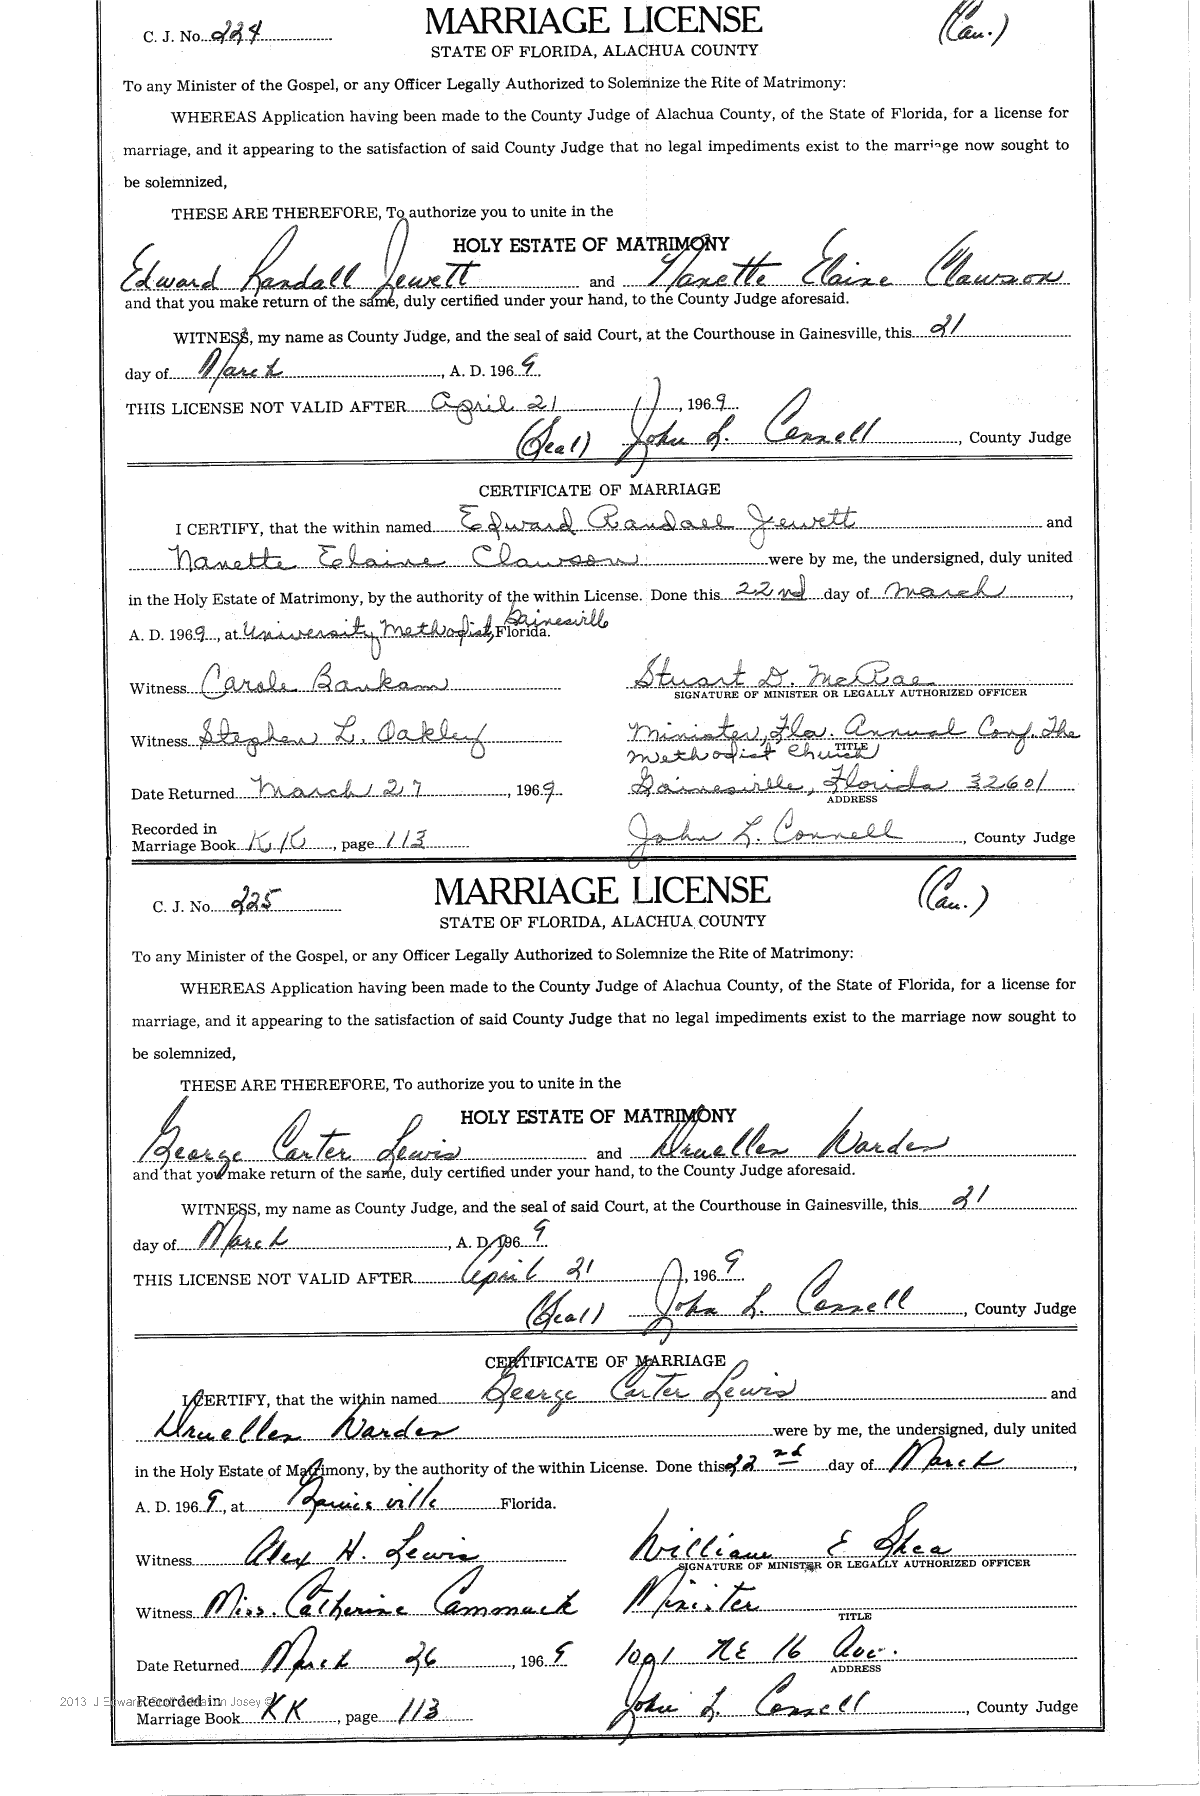 C. J. No. 224
MARRIAGE LICENSE
(Cau.)
STATE OF FLORIDA, ALACHUA COUNTY
To any Minister of the Gospel, or any Officer Legally Authorized to Solemnize the Rite of Matrimony:
WHEREAS Application having been made to the County Judge of Alachua County, of the State of Florida, for a license for
marriage, and it appearing to the satisfaction of said County Judge that no legal impediments exist to the marriage now sought to
be solemnized,
THESE ARE THEREFORE, To authorize you to unite in the
HOLY ESTATE OF MATRIMONY
Edward Randall Jewett and Nanette Elaine Clawson
and that you make return of the same, duly certified under your hand, to the County Judge aforesaid.
WITNESS, my name as County Judge, and the seal of said Court, at the Courthouse in Gainesville, this 21
day of March, A. D. 1969.
THIS LICENSE NOT VALID AFTER April 21, 1969.
(Seal) John L. Connell, County Judge
CERTIFICATE OF MARRIAGE
I CERTIFY, that the within named Edward Randall Jewett and
Nanette Elaine Clawson were by me, the undersigned, duly united
in the Holy Estate of Matrimony, by the authority of the within License. Done this 22nd day of March,
A. D. 1969, at University Methodist, Gainesville Florida.
Witness Carole Bankam
Stuart D. McRae
SIGNATURE OF MINISTER OR LEGALLY AUTHORIZED OFFICER
Witness Stephen L. Oakley
Minister, Fla. Annual Conf. The
Methodist Church
TITLE
Date Returned March 27, 1969.
Gainesville, Florida 32601
ADDRESS
Recorded in
Marriage Book KK, page 113
John L. Connell, County Judge
C. J. No. 225
MARRIAGE LICENSE
(Cau.)
STATE OF FLORIDA, ALACHUA COUNTY
To any Minister of the Gospel, or any Officer Legally Authorized to Solemnize the Rite of Matrimony:
WHEREAS Application having been made to the County Judge of Alachua County, of the State of Florida, for a license for
marriage, and it appearing to the satisfaction of said County Judge that no legal impediments exist to the marriage now sought to
be solemnized,
THESE ARE THEREFORE, To authorize you to unite in the
HOLY ESTATE OF MATRIMONY
George Carter Lewis and Druellen Warden
and that you make return of the same, duly certified under your hand, to the County Judge aforesaid.
WITNESS, my name as County Judge, and the seal of said Court, at the Courthouse in Gainesville, this 21
day of March, A. D. 1969.
THIS LICENSE NOT VALID AFTER April 21, 1969.
(Seal) John L. Connell, County Judge
CERTIFICATE OF MARRIAGE
I CERTIFY, that the within named George Carter Lewis and
Druellen Warden were by me, the undersigned, duly united
in the Holy Estate of Matrimony, by the authority of the within License. Done this 22nd day of March,
A. D. 1969, at Gainesville Florida.
Witness Alex H. Lewis
William E Shea
SIGNATURE OF MINISTER OR LEGALLY AUTHORIZED OFFICER
Witness Miss. Catherine Cammack
Minister
TITLE
Date Returned March 26, 1969
1091 NE 16 Ave.
ADDRESS
Recorded in
Marriage Book KK, page 113
John L. Connell, County Judge
2013 J Edward Josey ©